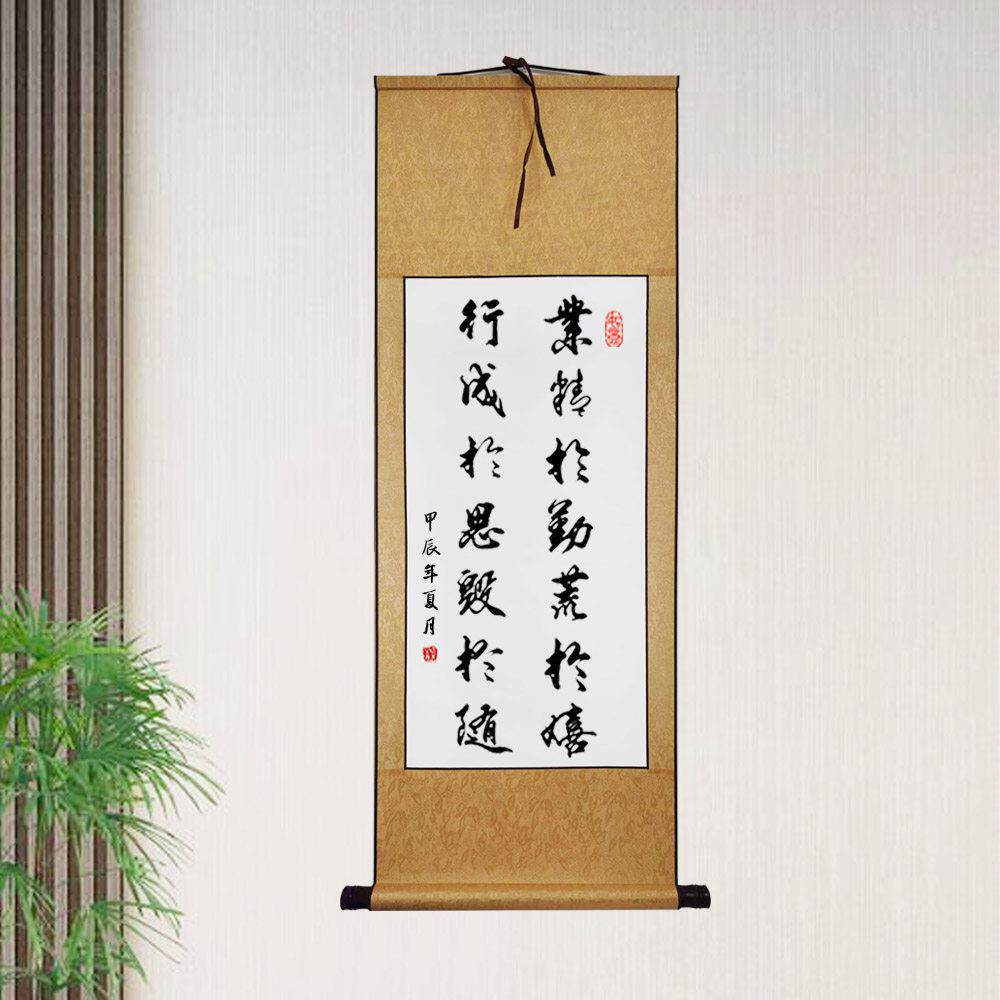 業精於勤荒於嬉
行成於思毀於随
甲辰年夏月